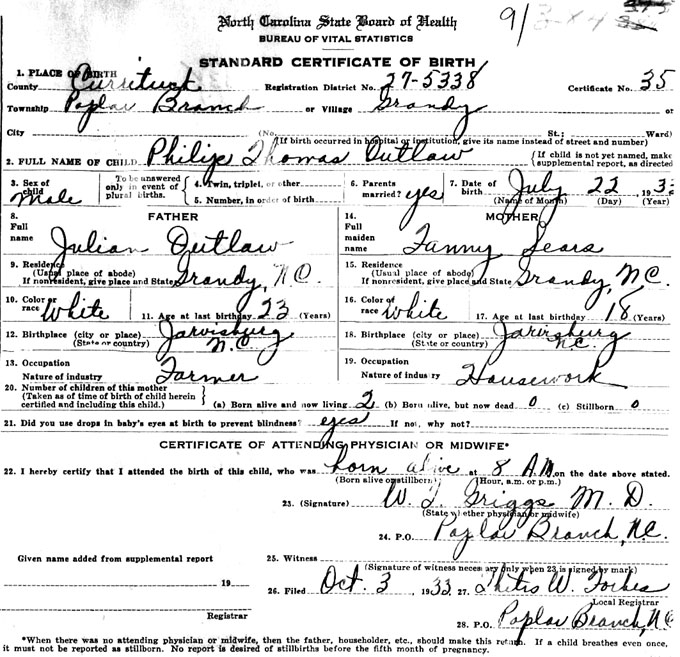 North Carolina State Board of Health
BUREAU OF VITAL STATISTICS
91
STANDARD CERTIFICATE OF BIRTH
1. PLACE OF BIRTH
County Currituck Registration District No. 27-5338 Certificate No. 35
Township Poplar Branch or Village Grandy or
City (No. St.; Ward)
(If birth occurred in hospital or institution, give its name instead of street and number)
2. FULL NAME OF CHILD Philip Thomas Outlaw {If child is not yet named, make supplemental report, as directed
3. Sex of child Male To be answered only in event of plural births. { 4. Twin, triplet, or other 5. Number, in order of birth 6. Parents married? yes 7. Date of birth July 22 193
(Name of Month) (Day) (Year)
8. FATHER
Full name Julian Outlaw
9. Residence (Usual place of abode) If nonresident, give place and State Grandy, N.C.
10. Color or race White 11. Age at last birthday 23 (Years)
12. Birthplace (city or place) (State or country) Jarvisburg N.C
13. Occupation Nature of industry Farmer
14. MOTHER
Full maiden name Fanny Sears
15. Residence (Usual place of abode) If nonresident, give place and State Grandy, N.C.
16. Color of race White 17. Age at last birthday 18 (Years)
18. Birthplace (city or place) (State or country) Jarvisburg N.C.
19. Occupation Nature of industry Housework
20. Number of children of this mother
(Taken as of time of birth of child herein certified and including this child.) (a) Born alive and now living 2 (b) Born alive, but now dead 0 (c) Stillborn 0
21. Did you use drops in baby's eyes at birth to prevent blindness? yes If not, why not?
CERTIFICATE OF ATTENDING PHYSICIAN OR MIDWIFE*
22. I hereby certify that I attended the birth of this child, who was born alive at 8 A.M. on the date above stated.
(Born alive or stillborn) (Hour, a.m. or p.m.)
23. (Signature) W. T. Griggs M. D.
(State whether physician or midwife)
24. P.O. Poplar Branch, N.C.
Given name added from supplemental report
25. Witness
(Signature of witness necessary only when 23 is signed by mark)
19
26. Filed Oct. 3, 1933 27. W. Forbes
Local Registrar
Registrar
28. P.O. Poplar Branch, N.C
*When there was no attending physician or midwife, then the father, householder, etc., should make this return. If a child breathes even once,
it must not be reported as stillborn. No report is desired of stillbirths before the fifth month of pregnancy.